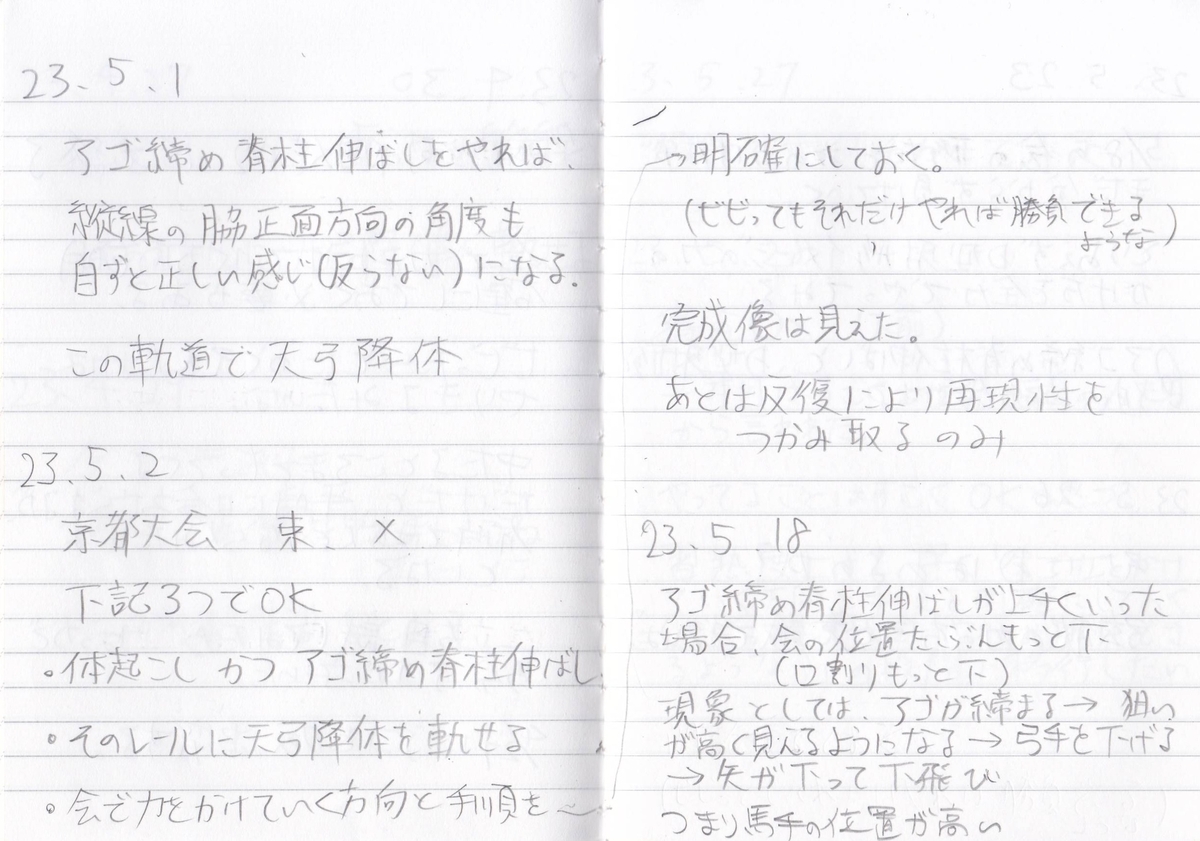 23.5.1
アゴ締め 脊柱伸ばしをやれば、
縦線の脇正面方向の角度も
自ずと正しい感じ(反らない)になる。
この軌道で 大弓降体
23.5.2
京都大会 東、×
下記3つでOK
・体起こし かつ アゴ締め脊柱伸ばし
・そのレールに大弓降体を軌せる
・会で力をかけていく方向と手順を〜
→明確にしておく。
(ビビってもそれだけやれば勝負できる
ような)
完成像は見えた。
あとは反復により再現性を
つかみ取るのみ
23.5.18
アゴ締め脊柱伸ばしが上手くいった
場合、会の位置たぶんもっと下
(口割りもっと下)
現象としては、アゴが締まる→狙い
が高く見えるようになる→弓手を下げる
→矢が下って下飛び
つまり馬手の位置が高い